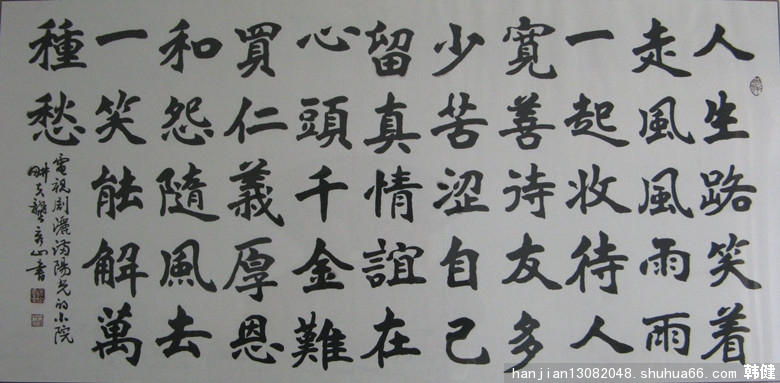 人生路笑着
走風風雨雨
一起收待人
寬善待友多
少苦涩自己
留真情誼在
心頭千金難
買仁義厚恩
和怨隨風去
一笑能解萬
種愁
電視剧灑满陽光的小院
書
hanjian13082048.shuhua66.com 韩健